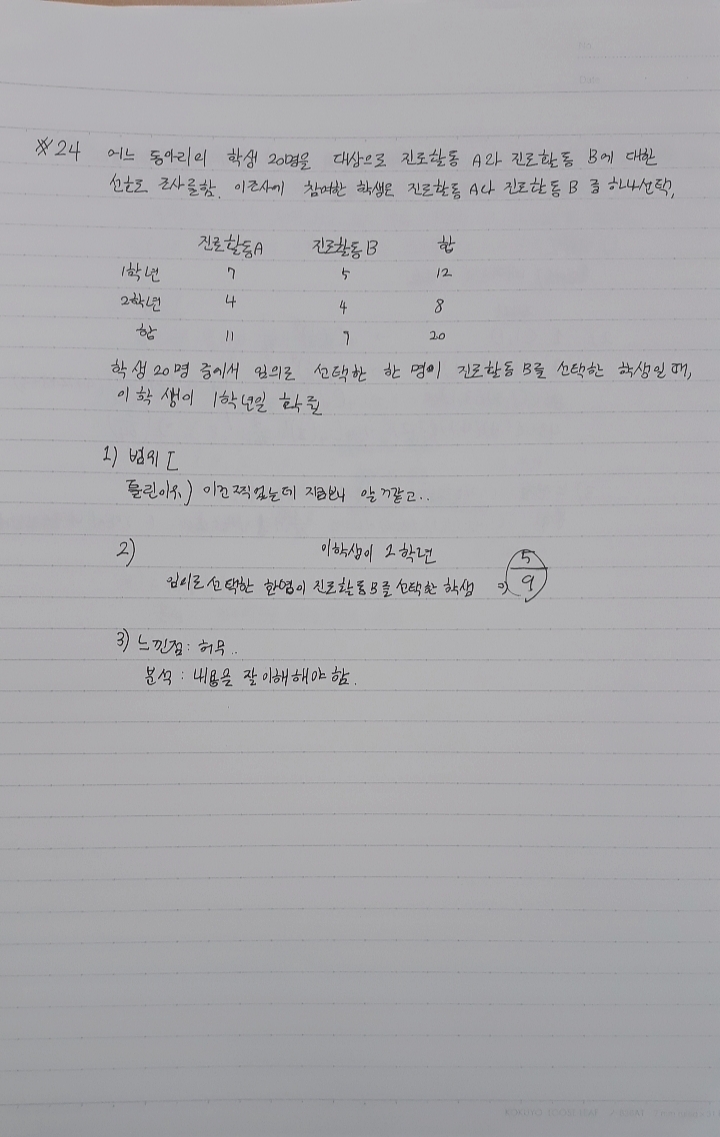 ※24 어느 동아리의 학생 20명을 대상으로 진로활동 A와 진로활동 B에 대한
선호도 조사를함. 이조사에 참여한 학생은 진로활동 A나 진로활동 B 중 하나선택,
진로활동A 진로활동B 합
1학년 7 5 12
2학년 4 4 8
합 11 9 20
학생 20명 중에서 임의로 선택한 한 명이 진로활동B를 선택한 학생일때,
이 학생이 1학년일 확률
1) 범위 [
틀린이유) 이건찍었는데 지금보니 알꺼같고..
2) 이학생이 1학년
임의로선택한 한명이 진로활동B를선택한 학생 5/9
3) 느낀점: 허무..
분석 : 내용을 잘 이해해야 함.